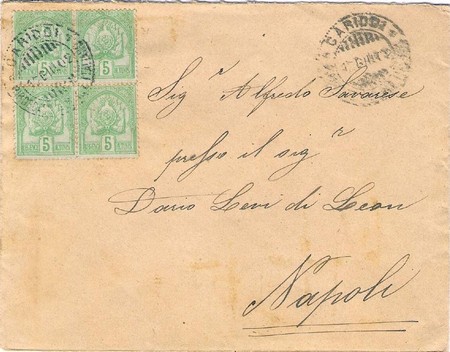 CARIDDI
CARIDDI
5 5
5 5
Sig.r Alfredo Savarese
presso il sig.r
Dario Levi di Leon
Napoli